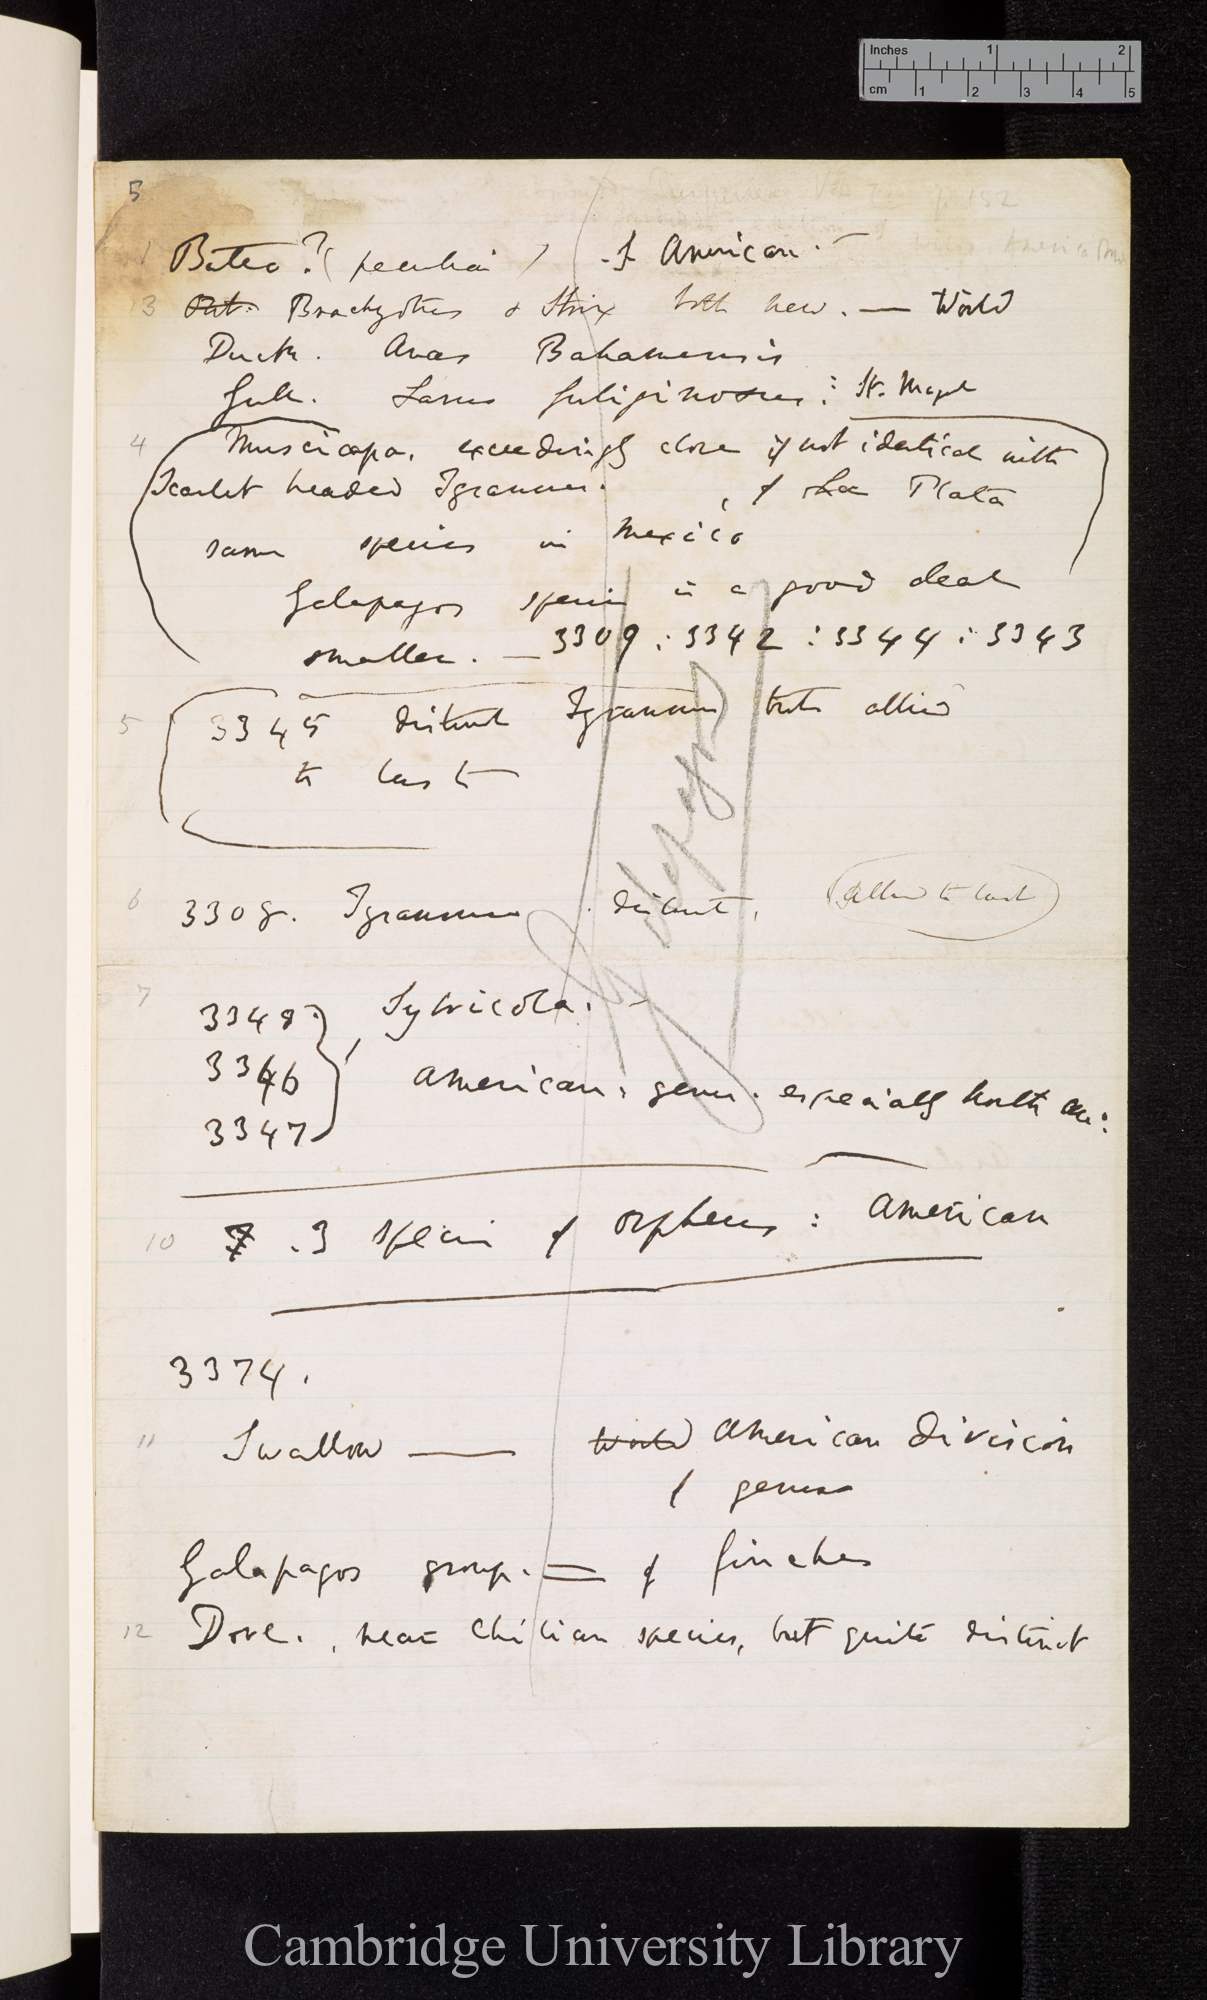 Inches 1 2
cm 1 2 3 4 5
5
1 Buteo? (peculiar) – of American –
3 Out: Brachyotus & Strix both new. — World
Duck. Anas Bahamensis
Gull. Larus fuliginosus:
4 Muscicapa. exceedingly close if not identical with
Scarlet headed Tyrannus. , of La Plata
same species in Mexico
Galapagos specim is a good deal
smaller. — 3309 : 3342 : 3344 : 3343
5 3345 distinct Tyrannus but allied
to last —
6 330g. Tyrannus distinct, (allied to last)
Galapagos
7 3348 } Sylvicola. –
3346 American: genus. especially North Am:
3347
10 7 .3 specim of orpheus : American
3374.
11 Swallow — World American Division
of genus
Galapagos group. = of finches
12 Dove. , near Chilian species, but quite distinct
Cambridge University Library